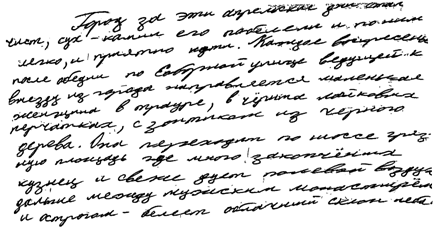 Город за эти апрельские дни стал
чист, сух, камни его побелели и по ним
легко и приятно идти. Каждое воскресенье
после обедни по Соборной улице ведущей к
выезду из города направляется маленькая
женщина в трауре, в чёрных лайковых
перчатках, с зонтиком из чёрного
дерева. Она переходит по шоссе гряз-
ную площадь где много закопчённых
кузниц и свежо дует полевой воздух
дальше между мужским монастырём
и острогом - белеет облачный склон неба